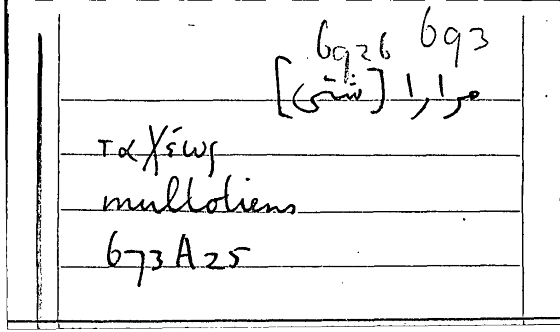 6926 693
مرارا [شتى]
ταχέως
multotiens
673A25